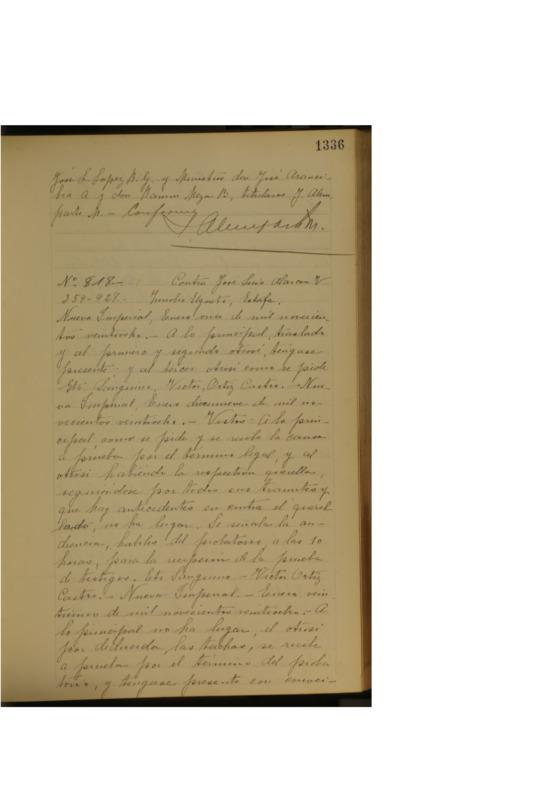 1336
José L. Lopez B. G. y Ministro don José Aranci-
bia A y don Ramon Meza B, titulares J. Alem
parte M. — Conforme
Alemparte M.
Nº 818 — Contra Jose Luis Alarcon V
259-928.- Eugenio, Estafa.
Nueva Imperial, Enero once de mil novecien
tos veintiocho. — A lo principal, traslado
y al primero y segundo otrosi, téngase
presente; y al tercer otrosi como se pide
Eti Sanguino, Victor Ortiz Castro. - Nue
va Imperial, Enero diecinueve de mil no
vecientos veintiocho. — Vistos: A lo prin-
cipal, como se pide y se recibe la causa
a prueba por el término legal, y al
otrosi habiendo la respectiva querella,
seguiendose por todos sus tramites y
que hay antecedentes en contra el querel
lado, no ha lugar. Se señala la au-
diencia, habiles del probatorio, a las 10
horas, para la recepcion de la prueba
de testigos. Eti Sanguino - Victor Ortiz
Castro. - Nueva Imperial. - Enero vein
de mil novecientos veintiocho. - A
lo principal no ha lugar, el otrosi
por deducida, las tachas, se recibe
a prueba por el término del proba
torio, y tengase presente con